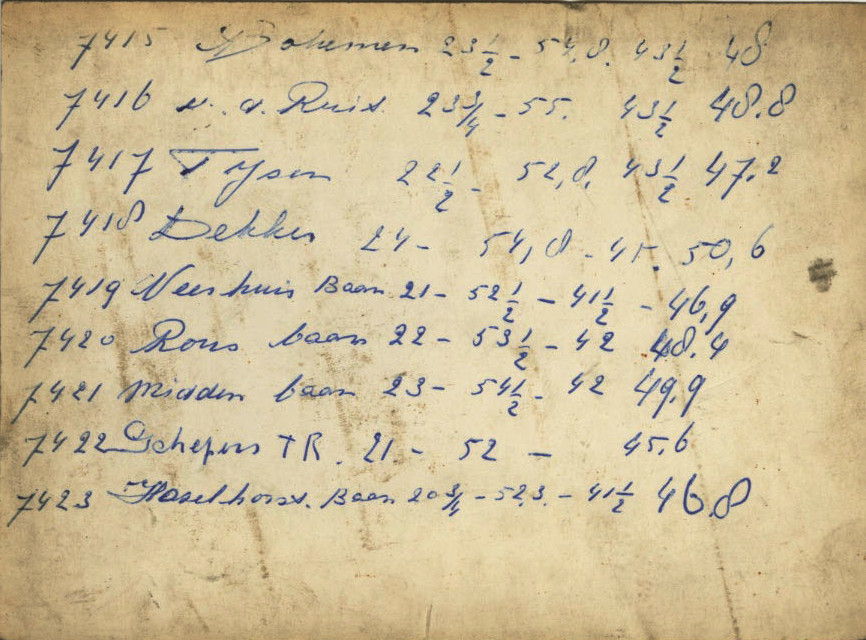 7415 Bohemen 23½ - 54,8. 43½ 48
7416 v. d. Ruit. 23¾ - 55. 43½ 48.8
7417 Tijsen 22½ - 52,8. 43½ 47.2
7418 Dekker 24 - 54,8 - 45. 50,6
7419 Neerhuis Baan 21 - 52½ - 41½ - 46,9
7420 Rons baan 22 - 53½ - 42 48.4
7421 Midden baan 23 - 54½ - 42 49.9
7422 Schepers TR. 21 - 52 - 45.6
7423 Haselhorst. Baan 20¾ - 52.3. - 41½ 46.8